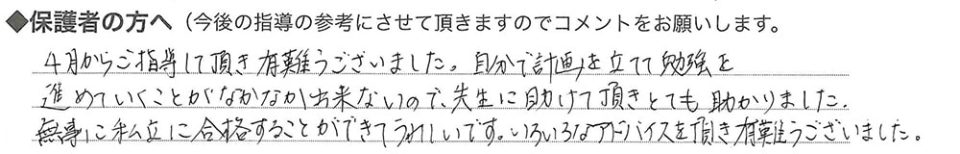 ◆保護者の方へ（今後の指導の参考にさせて頂きますのでコメントをお願いします。
4月からご指導して頂き有難うございました。自分で計画を立てて勉強を
進めていくことがなかなか出来ないので、先生に助けて頂きとても助かりました.
無事に私立に合格することができてうれしいです。いろいろなアドバイスを頂き有難うございました。